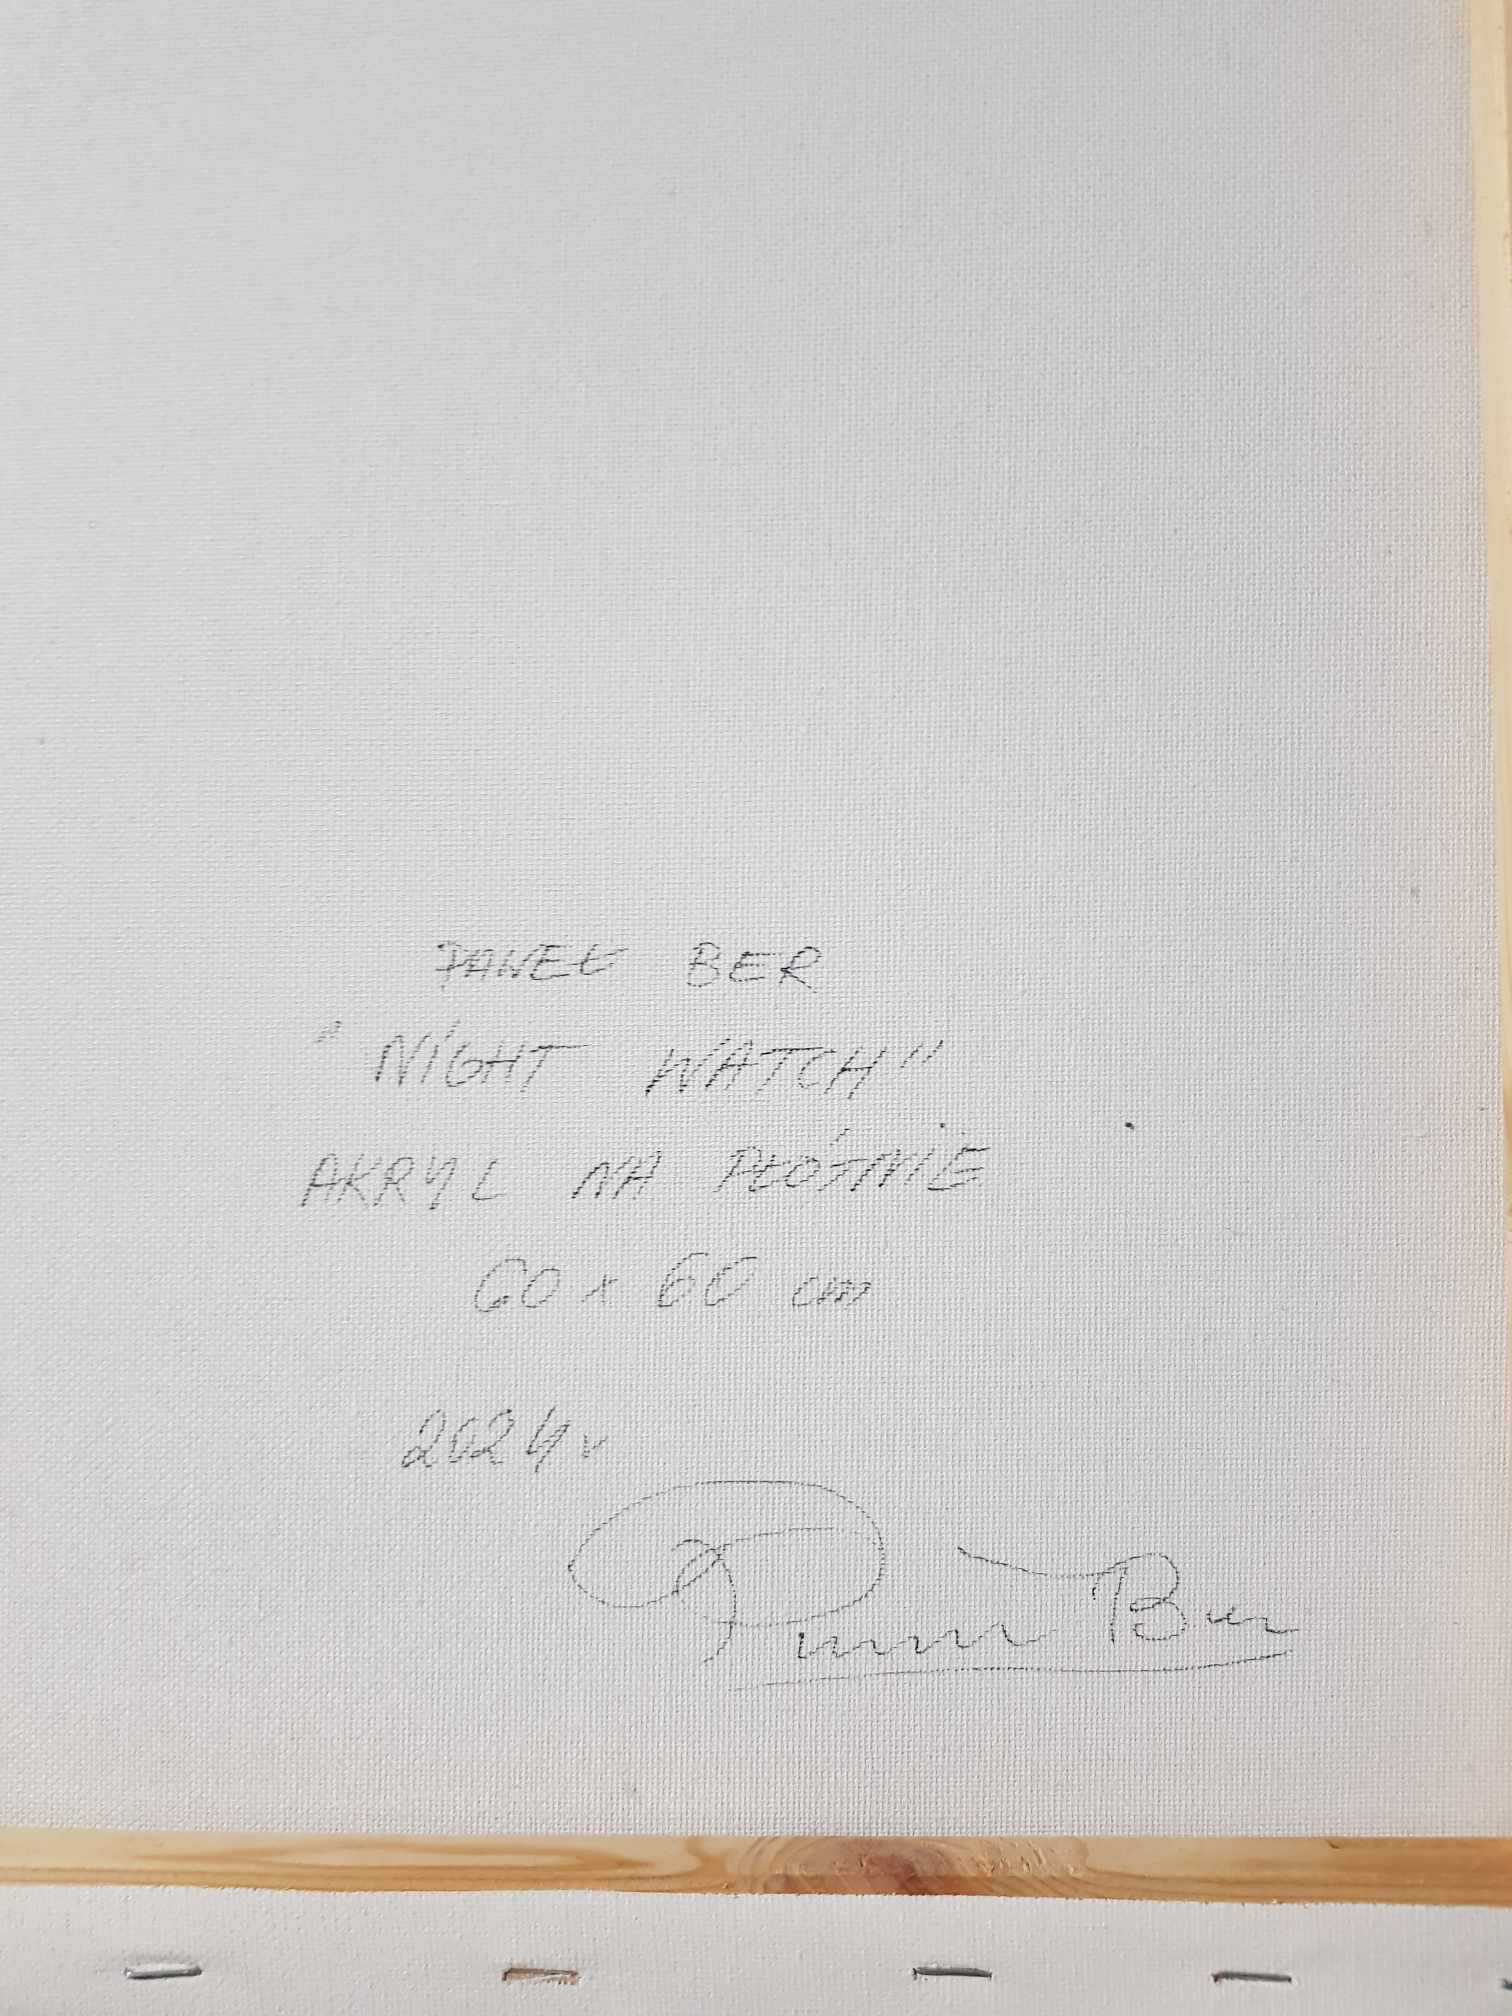 PAWEŁ BER
"NIGHT WATCH"
AKRYL NA PŁÓTNIE
60 x 60 cm
2024r
Paweł Ber